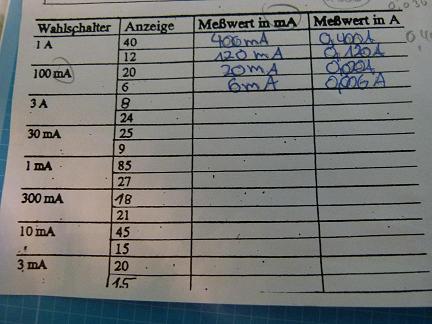 Wahlschalter Anzeige Meßwert in mA Meßwert in A
1 A 40 400mA 0,400A
12 120mA 0,120A
100 mA 20 20mA 0,020A
6 6mA 0,006A
3 A 8
24
30 mA 25
9
1 mA 85
27
300 mA 18
21
10 mA 45
15
3 mA 20
15